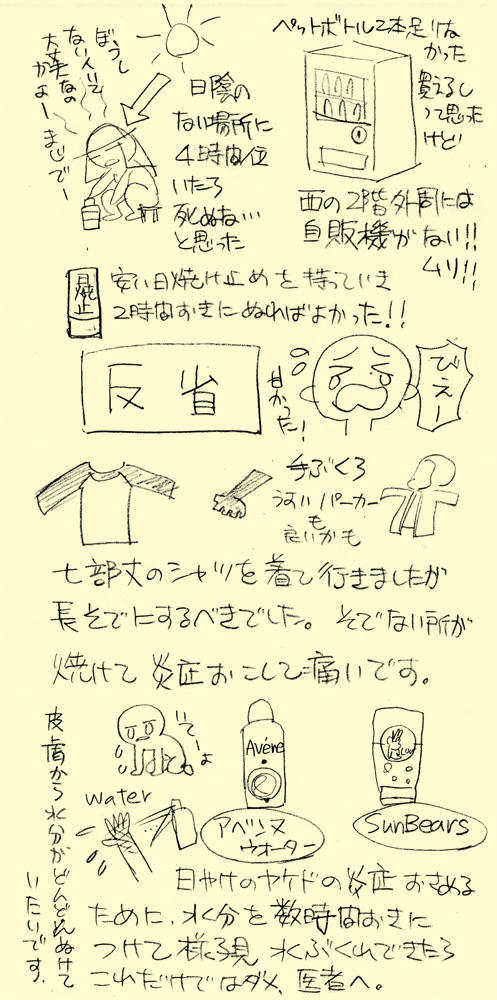 ぼうし
ない人いて
大丈夫なの
かよー
まじでー
日陰の
ない場所に
4時間位
いたら
死ぬな…
と思った
ペットボトル2本足りな
かった
買えるし
って思った
けど
西の2階外周には
自販機がない!!
ムリ!!
日焼止
安い日焼け止めを持っていき
2時間おきにぬればよかった!!
反省
甘かった!
びえー
手ぶくろ
うすいパーカー
も
良いかも
七部丈のシャツを着て行きましたが
長そでにするべきでした。そでない所が
焼けて炎症おこして痛いです。
皮膚から水分がどんどんぬけて
いたいです。
いてーよ
water
Avène
アベンヌ
ウォーター
SunBears
日やけのヤケドの炎症おさめる
ために、水分を数時間おきに
つけて様子見 水ぶくれできたら
これだけではダメ、医者へ。